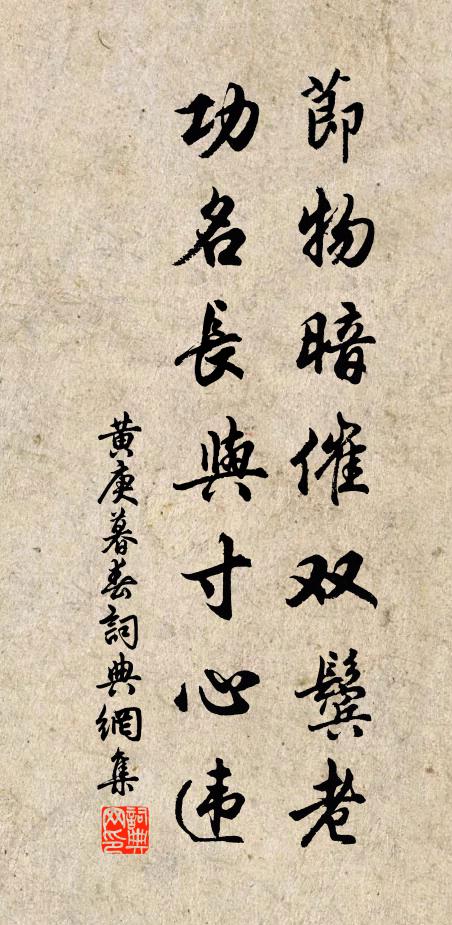 節物暗催双鬓老
功名長與寸心违
黄庚暮春詞典網集
詞典网印